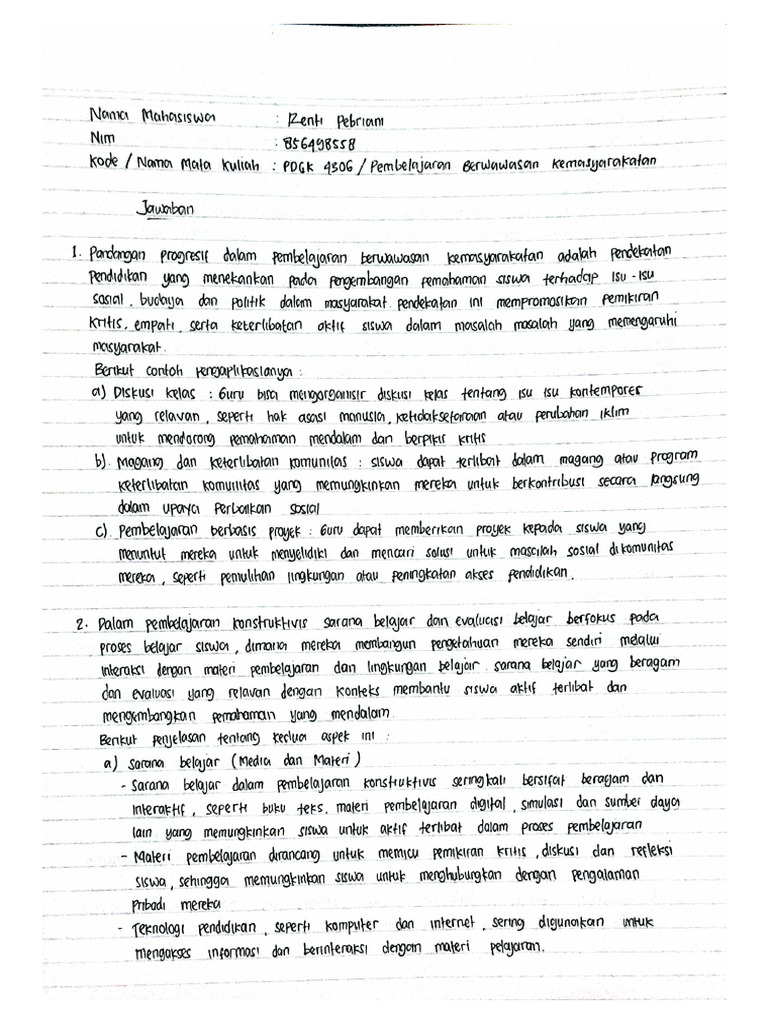 Nama Mahasiswa : Renti Pebriani
Nim : 856498558
Kode / Nama Mata Kuliah : PDGK 4306 / Pembelajaran Berwawasan Kemasyarakatan
Jawaban
1. Pandangan progresif dalam pembelajaran berwawasan kemasyarakatan adalah pendekatan
pendidikan yang menekankan pada pengembangan pemahaman siswa terhadap isu-isu
sosial, budaya dan politik dalam masyarakat. pendekatan ini mempromosikan pemikiran
kritis, empati, serta keterlibatan aktif siswa dalam masalah masalah yang memengaruhi
masyarakat.
Berikut contoh pengaplikasianya :
a) Diskusi kelas : Guru bisa mengorganisir diskusi kelas tentang isu isu kontemporer
yang relavan, seperti hak asasi manusia, ketidaksetaraan atau perubahan iklim
untuk mendorong pemahaman mendalam dan berpikir kritis
b). Magang dan keterlibatan komunitas : siswa dapat terlibat dalam magang atau program
keterlibatan komunitas yang memungkinkan mereka untuk berkontribusi secara langsung
dalam upaya perbaikan sosial
c). Pembelajaran berbasis proyek : Guru dapat memberikan proyek kepada siswa yang
menuntut mereka untuk menyelidiki dan mencari solusi untuk masalah sosial dikomunitas
mereka, seperti pemulihan lingkungan atau peningkatan akses pendidikan.
2. Dalam pembelajaran konstruktivis sarana belajar dan evaluasi belajar berfokus pada
proses belajar siswa, dimana mereka membangun pengetahuan mereka sendiri melalui
interaksi dengan materi pembelajaran dan lingkungan belajar. sarana belajar yang beragam
dan evaluasi yang relavan dengan konteks membantu siswa aktif terlibat dan
mengembangkan pemahaman yang mendalam.
Berikut penjelasan tentang kedua aspek ini :
a) sarana belajar (Media dan Materi)
- Sarana belajar dalam pembelajaran konstruktivis seringkali bersifat beragam dan
interaktif, seperti buku teks, materi pembelajaran digital, simulasi dan sumber daya
lain yang memungkinkan siswa untuk aktif terlibat dalam proses pembelajaran
- Materi pembelajaran dirancang untuk memicu pemikiran kritis, diskusi dan refleksi
siswa, sehingga memungkinkan siswa untuk menghubungkan dengan pengalaman
pribadi mereka
- Teknologi pendidikan, seperti komputer dan internet, sering digunakan untuk
mengakses informasi dan berinteraksi dengan materi pelajaran.